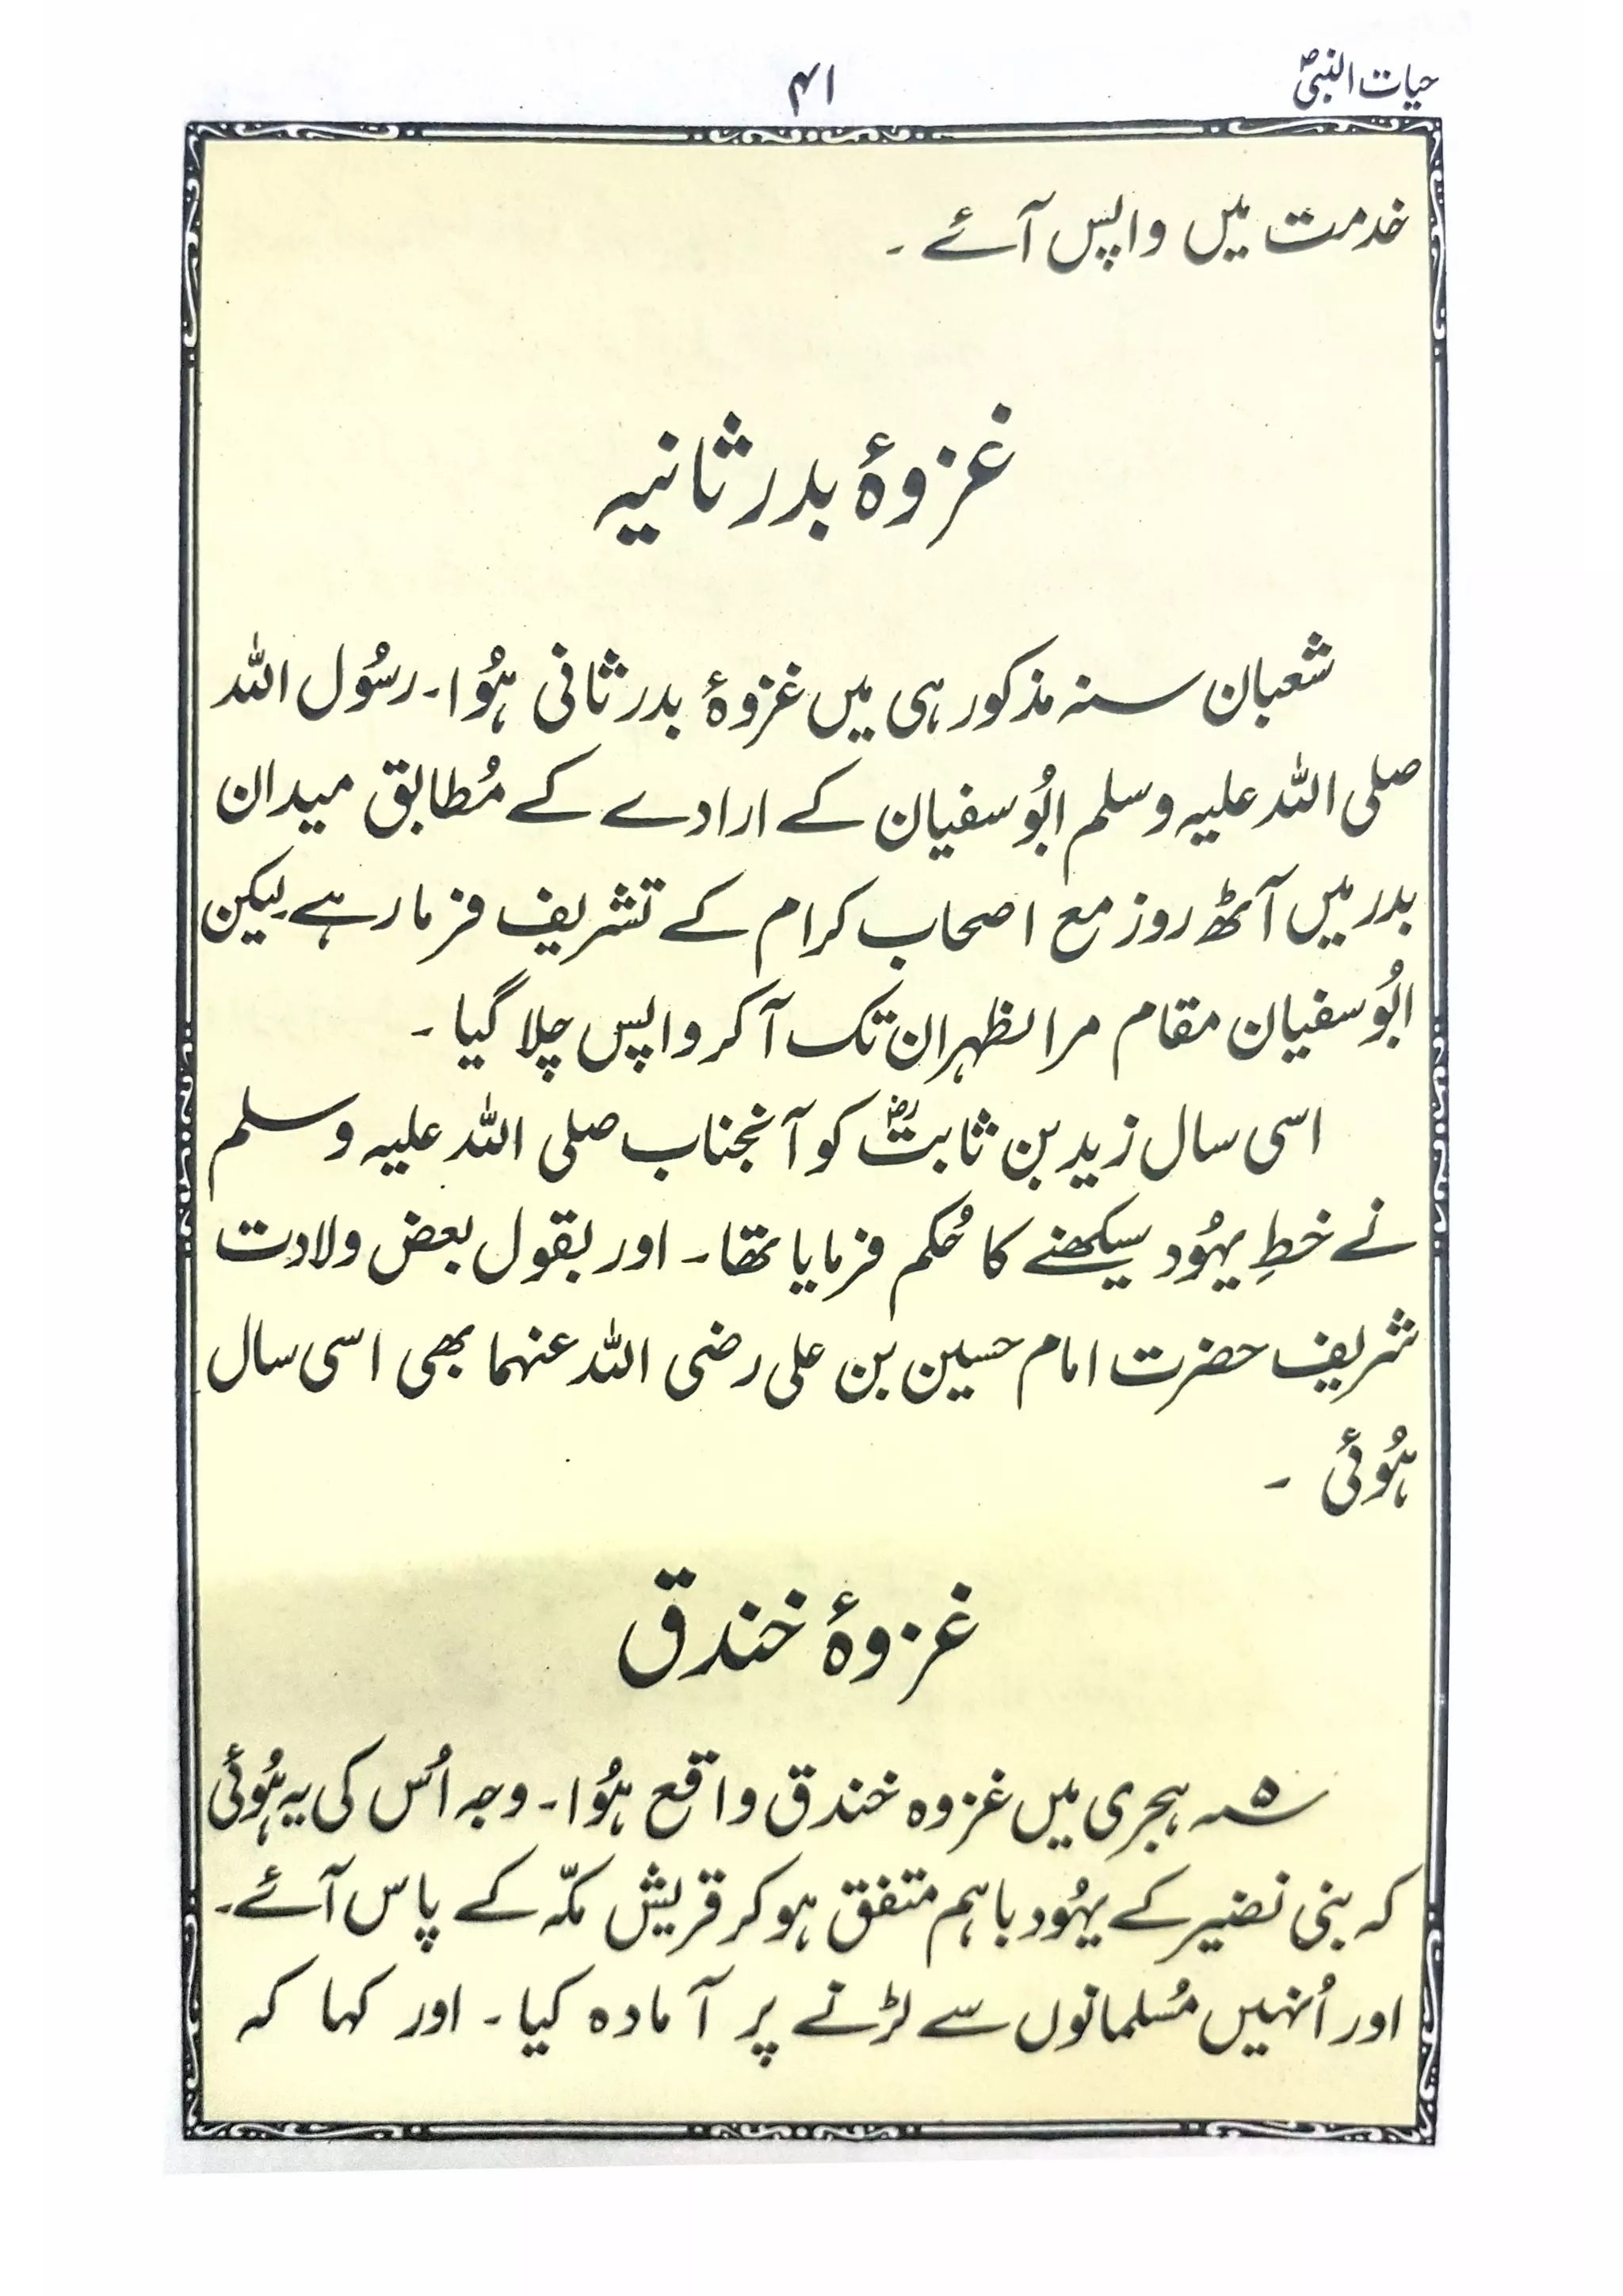 حیات النبیؐ
۴۱
خدمت میں واپس آئے ۔
غزوۂ بدر ثانیہ
شعبان سنہ مذکور ہی میں غزوۂ بدر ثانی ہُوا۔ رسُول اللہ
صلی اللہ علیہ وسلم ابُوسفیان کے ارادے کے مُطابق میدان
بدر میں آٹھ روز مع اصحاب کرام کے تشریف فرما رہے۔لیکن
ابُوسفیان مقام مرالظہران تک آکر واپس چلا گیا ۔
اسی سال زید بن ثابتؓ کو آنجناب صلی اللہ علیہ وسلم
نے خطِ یہُود سیکھنے کا حُکم فرمایا تھا۔ اور بقول بعض ولادت
شریف حضرت امام حسین بن علی رضی اللہ عنہما بھی اسی سال
ہُوئی ۔
غزوۂ خندق
۵؁ ہجری میں غزوہ خندق واقع ہُوا۔ وجہ اُس کی یہ ہُوئی
کہ بنی نضیر کے یہُود باہم متفق ہوکر قریش مکّہ کے پاس آئے۔
اور اُنہیں مُسلمانوں سے لڑنے پر آمادہ کیا۔ اور کہا کہ